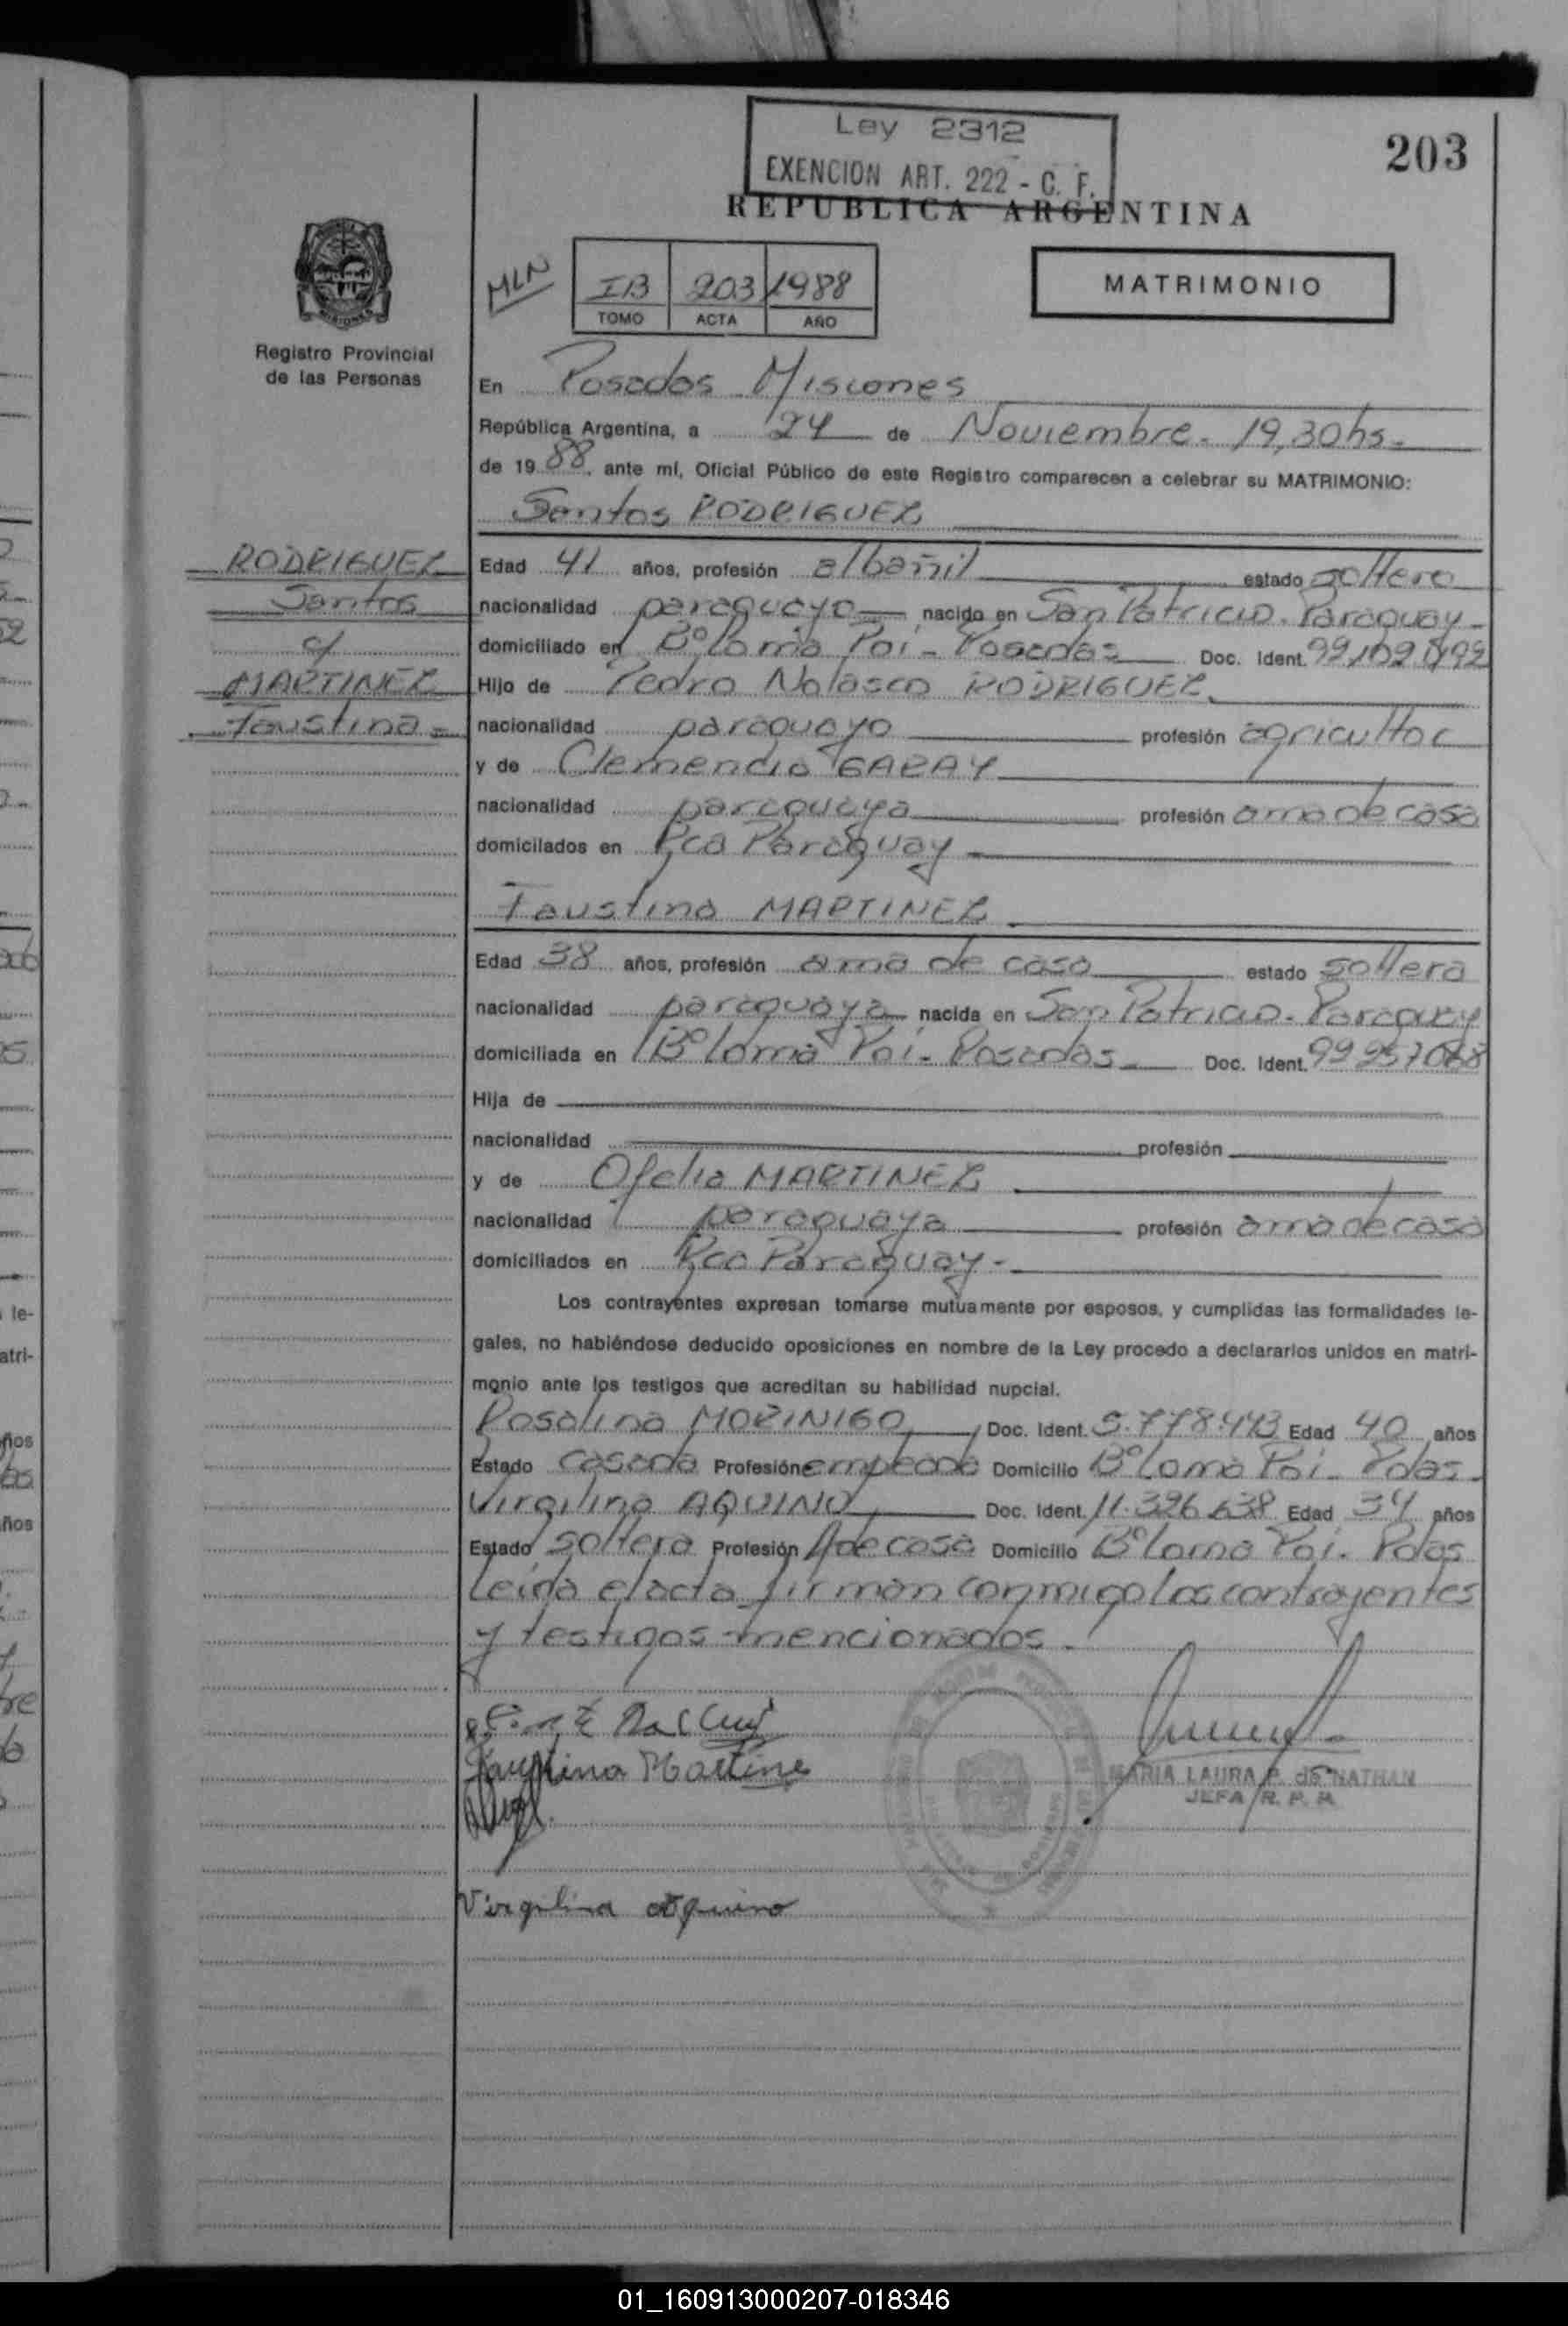 Ley 2312
EXENCION ART. 222 - C. F.
203
REPUBLICA ARGENTINA
MLN
IB 203 1988
TOMO ACTA AÑO
MATRIMONIO
Registro Provincial
de las Personas
En Posadas Misiones
República Argentina, a 24 de Noviembre. 19,30hs.
de 1988, ante mí, Oficial Público de este Registro comparecen a celebrar su MATRIMONIO:
Santos RODRIGUEZ
RODRIGUEZ
Santos
c/
MARTINEZ
Faustina
Edad 41 años, profesión albañil estado soltero
nacionalidad paraguayo nacido en San Patricio. Paraguay
domiciliado en Bº Loma Poi - Posadas Doc. Ident.
Hijo de Pedro Nolasco RODRIGUEZ
nacionalidad paraguayo profesión agricultor
y de Clemencia GARAY
nacionalidad paraguaya profesión ama de casa
domicilados en Rca Paraguay
Faustina MARTINEZ
Edad 38 años, profesión ama de casa estado soltera
nacionalidad paraguaya nacida en San Patricio. Paraguay
domiciliada en Bº Loma Poi - Posadas Doc. Ident. 99957068
Hija de
nacionalidad profesión
y de Ofelia MARTINEZ
nacionalidad paraguaya profesión ama de casa
domiciliados en Rca Paraguay -
Los contrayentes expresan tomarse mutuamente por esposos, y cumplidas las formalidades le-
gales, no habiéndose deducido oposiciones en nombre de la Ley procedo a declararlos unidos en matri-
monio ante los testigos que acreditan su habilidad nupcial.
Rosalina MORINIGO Doc. Ident. 5.778.443 Edad 40 años
Estado casada Profesión empleada Domicilio Bº Loma Poi - Pdas -
Virgilina AQUINO Doc. Ident. 11.326.638 Edad 34 años
Estado soltera Profesión A de casa Domicilio Bº Loma Poi. Pdas
Leida el acta firman conmigo los contrayentes
y testigos mencionados.
Faustina Martine
MARIA LAURA P. de NATHAN
JEFA R. P. P.
Virgilina aquino
01_160913000207-018346